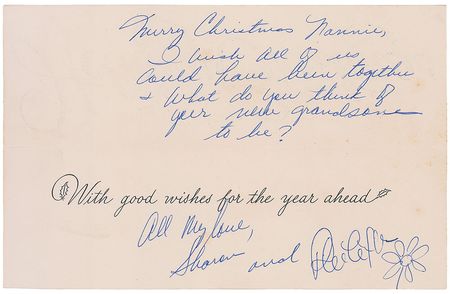 Merry Christmas Nannie,
I wish all of us
could have been together
+ What do you think of
your new grandson
to be?
With good wishes for the year ahead
All My love,
Sharon and